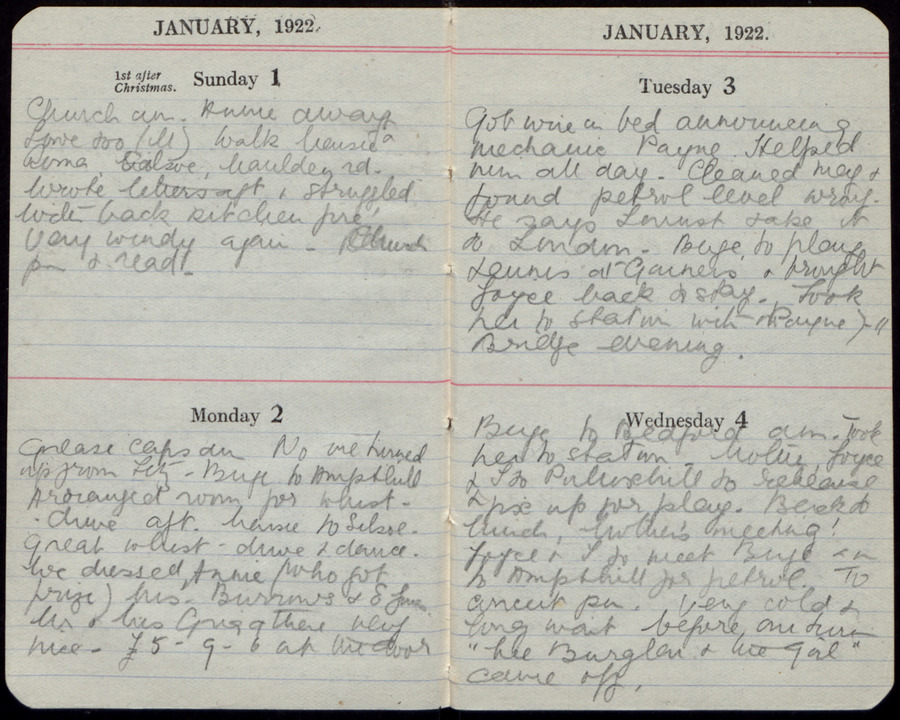 JANUARY, 1922.
1st after
Christmas. Sunday 1
Church am. Annie away
Love too (ill) Walk
Silsoe, Maulden rd.
Wrote letters aft & struggled
with back kitchen fire!
Very windy again - Church
pm & read.
Monday 2
Grease caps am No one turned
up from - Buge to Ampthill
Arranged room for whist-
-drive aft. to Silsoe.
Great whist-drive & dance.
We dressed Annie (who got
prize) Mrs. Burrows & E
Mr & Mrs there very
nice - £5-9-6 at the door
JANUARY, 1922.
Tuesday 3
Got wire in bed announcing
mechanic Payne. Helped
him all day. Cleaned mag &
found petrol level wrong.
He says I must take it
to London. Buge to play
tennis at Gainers & brought
Joyce back to stay. Took
her to station with Payne)
Bridge evening.
Wednesday 4
Buge to Bedford am. Took
her to station. Joyce
& I to Pulloxhill to rehearse
& fix up for play. Back to
lunch, Mother's meeting!
Joyce & I to meet Buge
to Ampthill for petrol. To
concert pm. Very cold &
long wait before our turn
"The Burglar & the Girl"
came off.